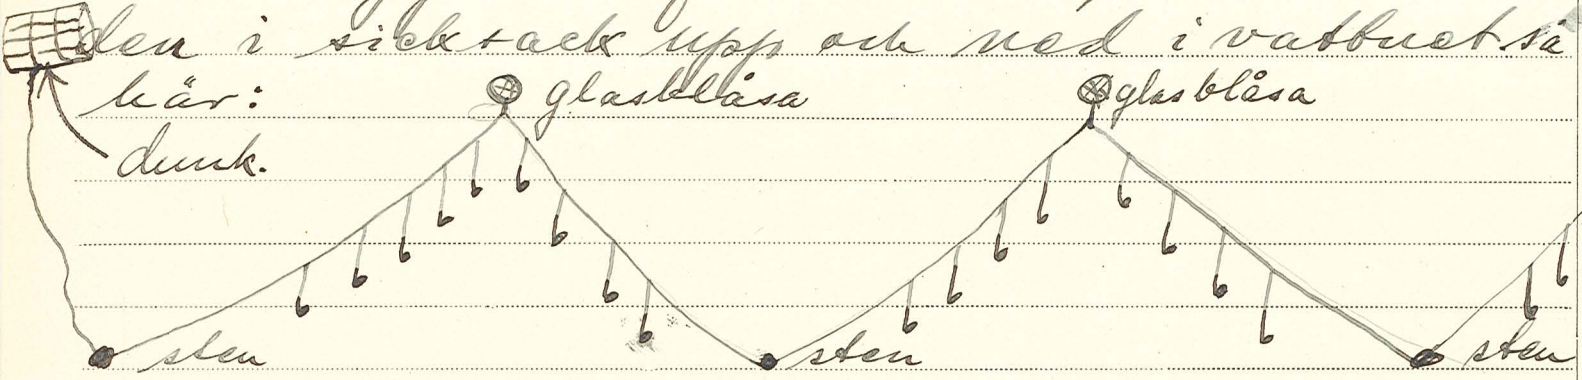 den i sicksack upp och ned i vattnet så
här: glasblåsa glasblåsa
dunk.
sten sten sten